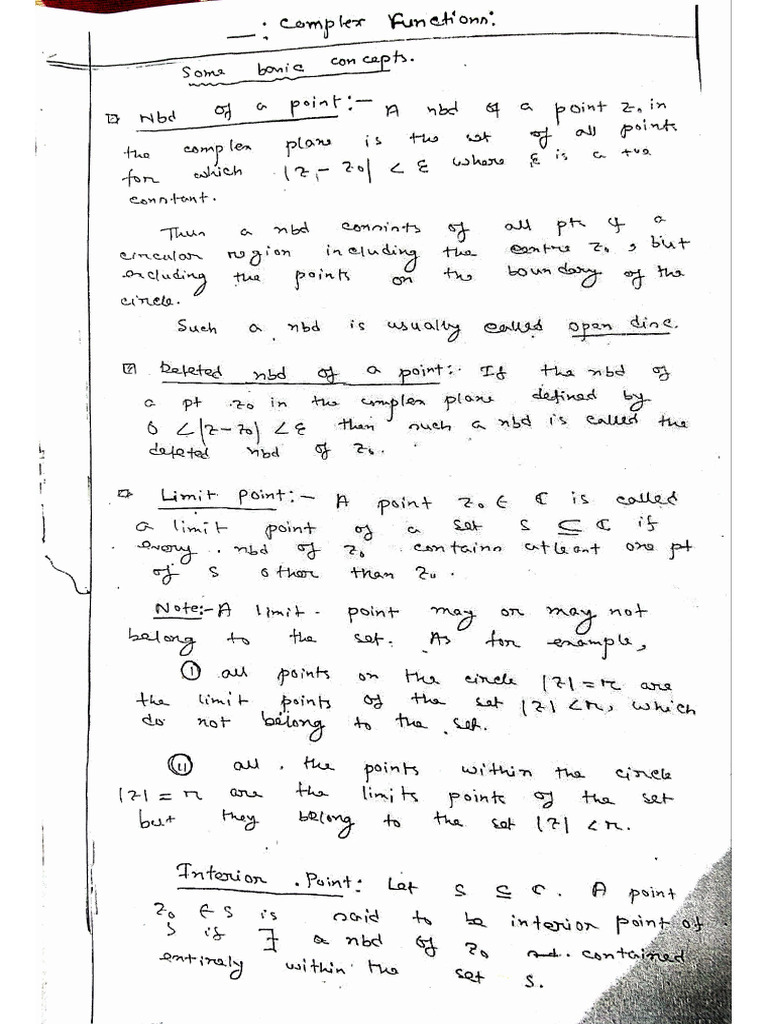 —: Complex Functions:
Some basic concepts.
Nbd of a point:— A nbd of a point z₀ in
the complex plane is the set of all points
for which |z₁ - z₀| < ε where ε is a +ve
constant.
Thus a nbd consists of all pts of a
circular region including the centre z₀, but
excluding the points on the boundary of the
circle.
Such a nbd is usually called open disc.
Deleted nbd of a point:- If the nbd of
a pt z₀ in the complex plane defined by
0 < |z-z₀| < ε then such a nbd is called the
deleted nbd of z₀.
Limit point:— A point z₀ ∈ ℂ is called
a limit point of a set S ⊆ ℂ if
every nbd of z₀ contains atleast one pt
of S other than z₀.
Note:- A limit point may or may not
belong to the set. As for example,
(i) all points on the circle |z| = r are
the limit points of the set |z| < r, which
do not belong to the set.
(ii) all the points within the circle
|z| = r are the limits points of the set
but they belong to the set |z| < r.
Interior Point: Let S ⊆ ℂ. A point
z₀ ∈ S is said to be interior point of
S if ∃ a nbd of z₀ contained
entirely within the set S.